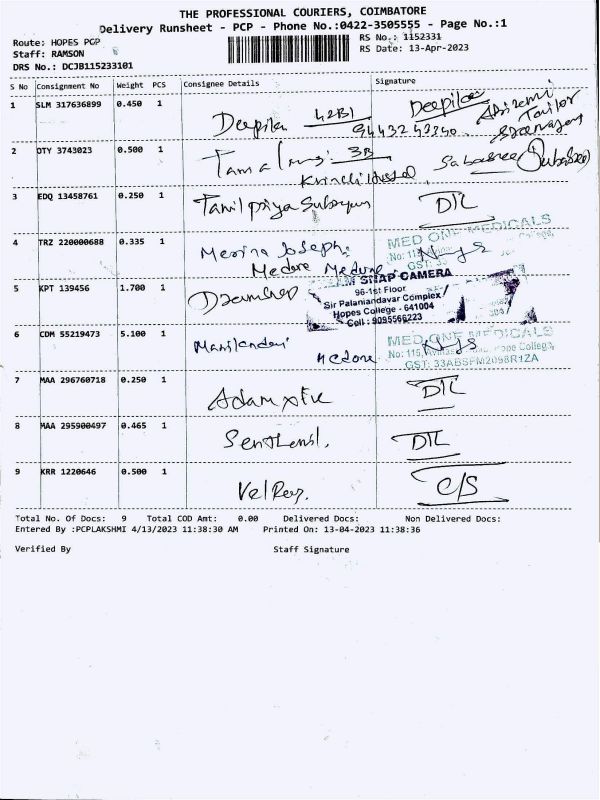 THE PROFESSIONAL COURIERS, COIMBATORE
Delivery Runsheet - PCP - Phone No.:0422-3505555 - Page No.:1
Route: HOPES PCP
Staff: RAMSON
DRS No.: DCJB115233101
RS No.: 1152331
RS Date: 13-Apr-2023
S No Consignment No Weight PCS Consignee Details Signature
1 SLM 317636899 0.450 1 Deepika 42B1 Deepika
Tailor
2 DTY 3743023 0.500 1 3B
3 EDQ 13458761 0.250 1 Tamil priya DTL
4 TRZ 220000688 0.335 1 Merina Joseph
MED ONE MEDICALS
5 KPT 139456 1.700 1
SNAP CAMERA
96-1st Floor
Sir Palaniandavar Complex
Hopes College - 641004
Cell : 9095566223
6 CDM 55219473 5.100 1 Manikandan
MED ONE MEDICALS
No: 115, Hope College,
GST: 33ABSPM2098R1ZA
7 MAA 296760718 0.250 1 DTL
8 MAA 295900497 0.465 1 DTL
9 KRR 1220646 0.500 1 C/S
Total No. Of Docs: 9 Total COD Amt: 0.00 Delivered Docs: Non Delivered Docs:
Entered By :PCPLAKSHMI 4/13/2023 11:38:30 AM Printed On: 13-04-2023 11:38:36
Verified By Staff Signature